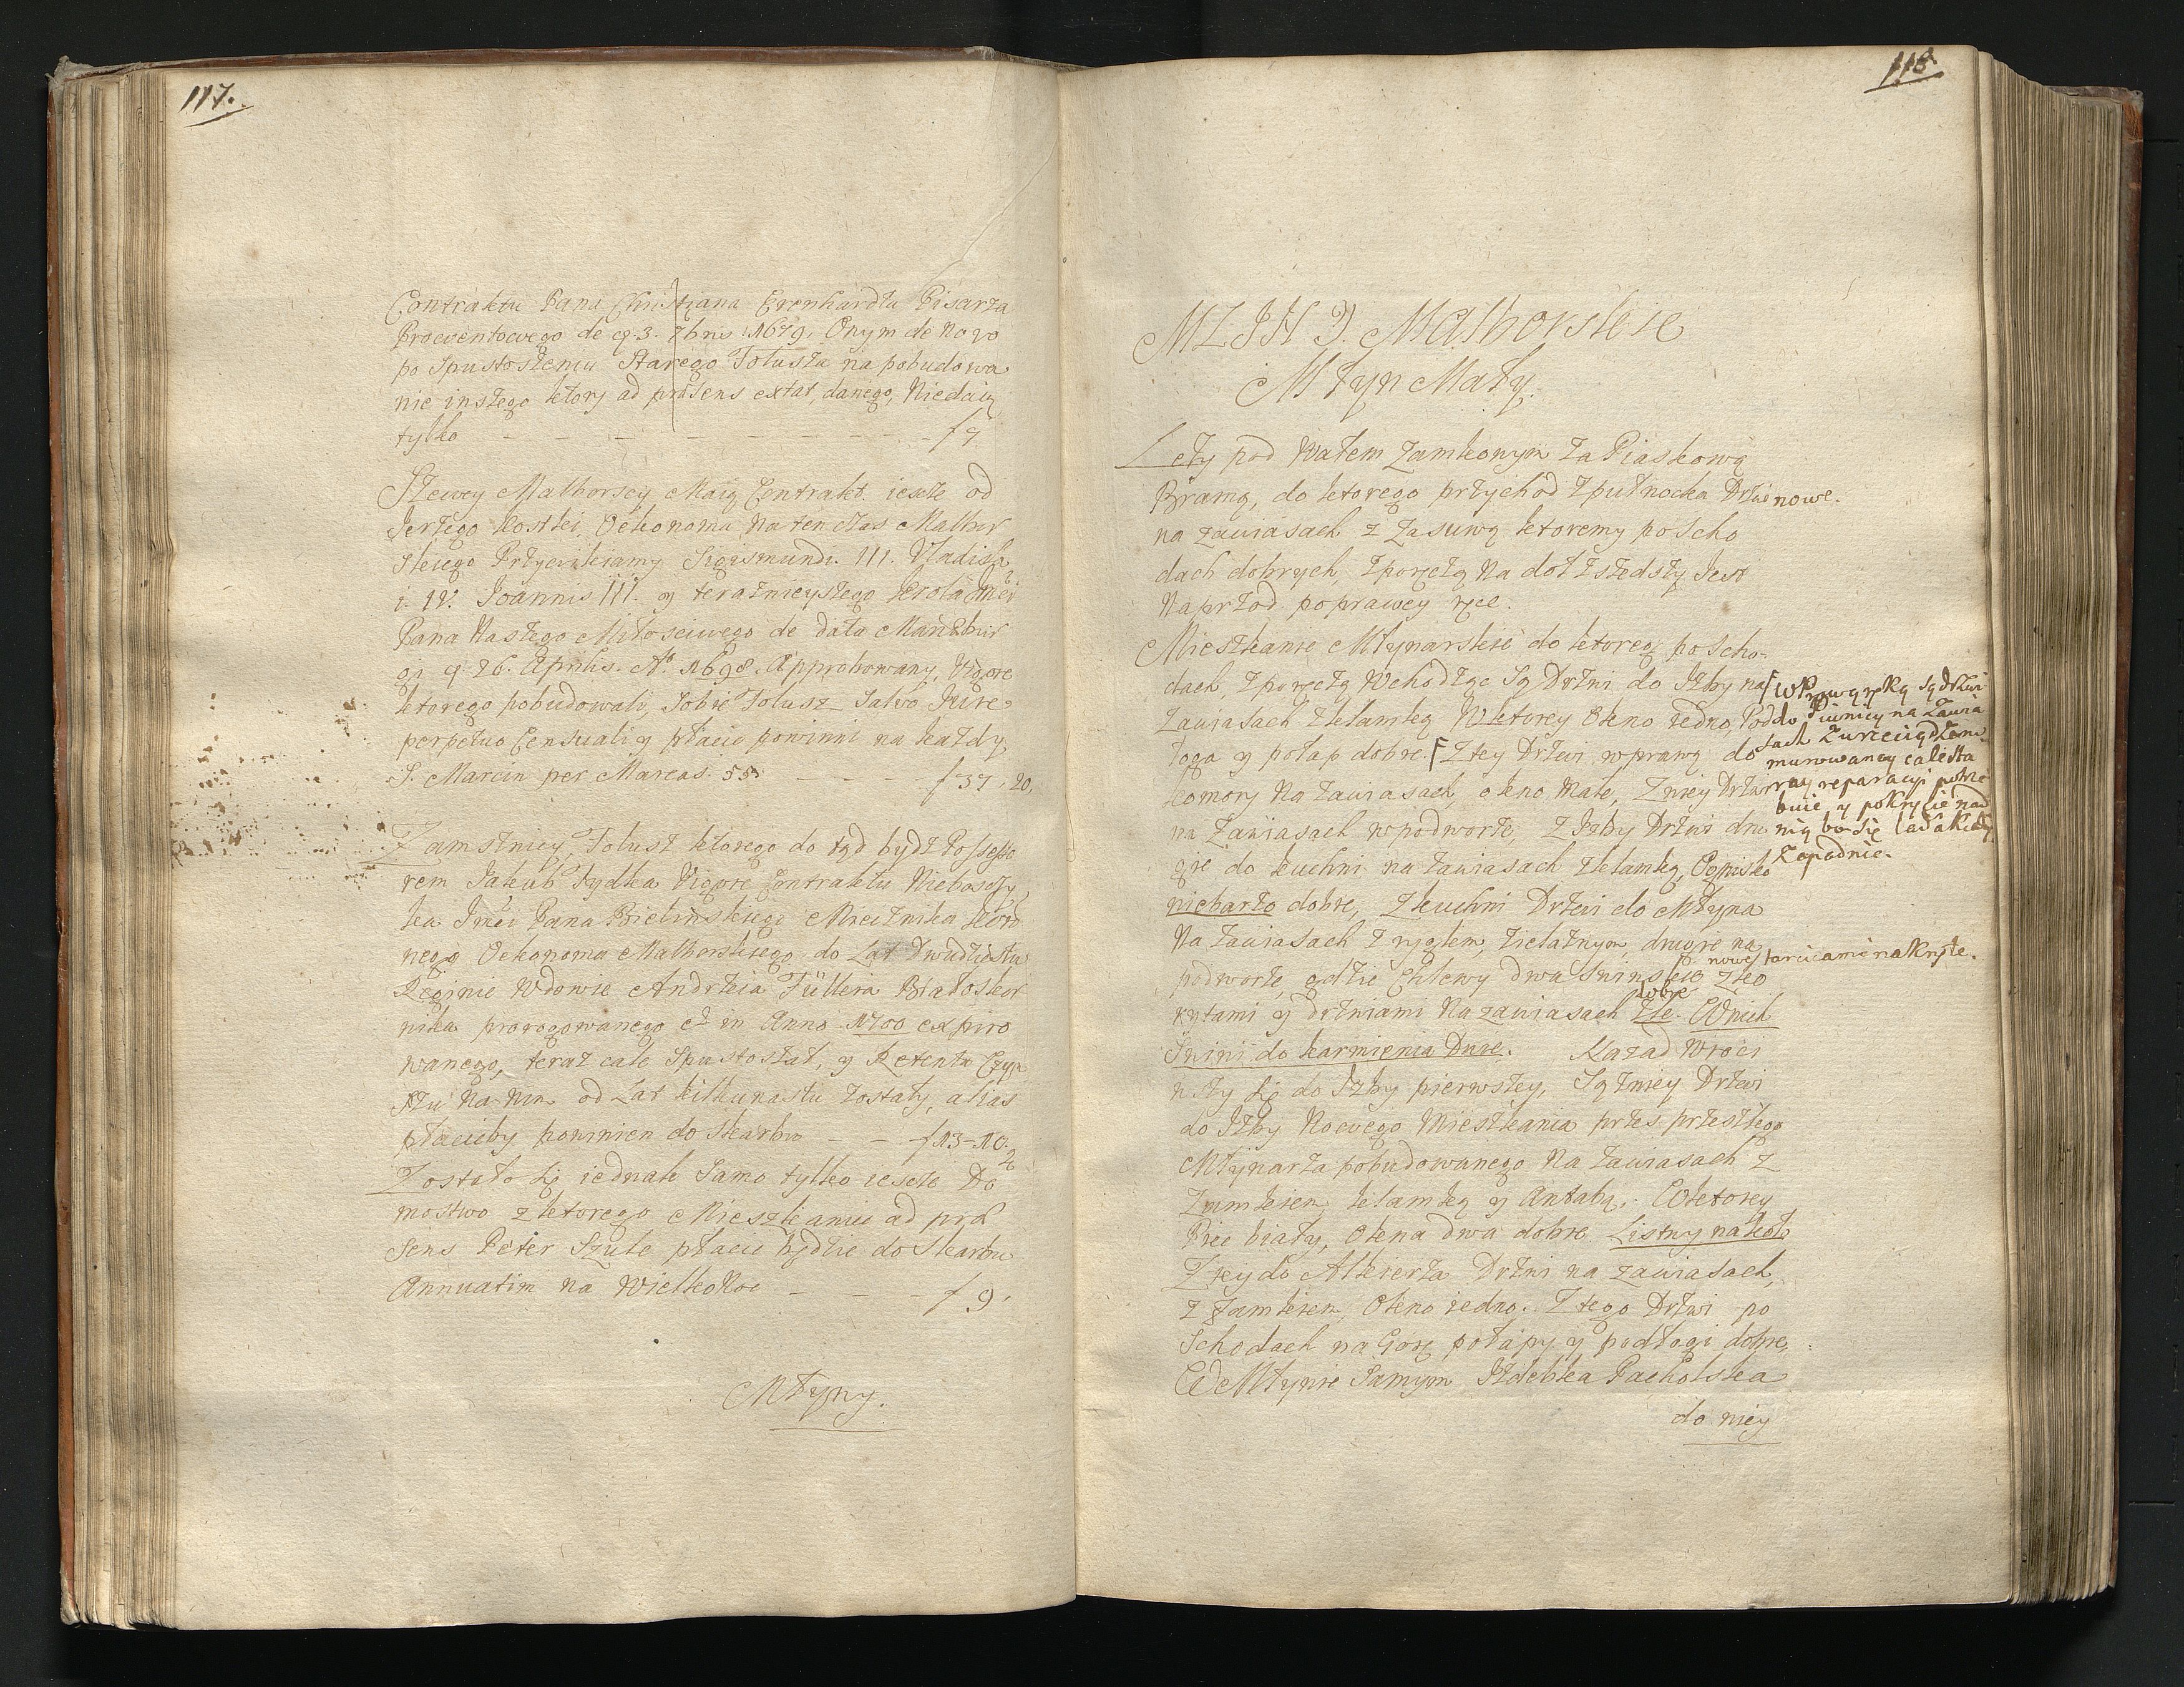 117.
Contraktu Pana Christiana Erenhardta Pisarza
Proventowego de 3. 7bris 1679. Onym de novo
po Spustoszeniu Starego Folusza na pobudowa
nie inszego ktory ad præsens extat, danego, Niedaią
tylko — — — — — — — f 9
Szewcy Malborscy Maią Contrakt ieszcze od
Jerzego Kostki, Oekonoma na ten czas Malbor
skiego Przywileiamy Sigismundi III. Vladisla
i IV. Joannis III. y teraznieyszego Krola Jmci
Pana Naszego Miłosciwego de data
26. Aprilis. Aº. 1698. Approbowany, Vigore
ktorego pobudowali Sobie Folusz Salvo Jure
perpetuo Censuali y płacic powinni na każdy
S. Marcin per Marcas 55 — — — f 37, 20,
Zamszniey, Folusz ktorego do tąd bydz Possesso
rem Jakub Fydka Vigore Contraktu Nieboszczy
ka Jmci Pana Bielinskiego Miecznika Koron
nego Oekonoma Malborskiego do Lat Dwudziestu
Reginie Wdowie Andrzeia Füllera Białoskor
nika prorogowanego et in Anno 1700 expiro
wanego, teraz cale Spustoszał, y Retenta Czyn
szu na nim od Lat kilkunastu zostały, alias
płacicby powinien do Skarbu — — f 13-10.
Zostało się iednak Samo tylko ieszcze Do
mostwo z ktorego Mieszkaniu ad præ
sens Peter Szulc płacic będzie do Skarbu
Annuatim na Wielkonoc — — — f 9.
Młyny.
118.
MŁINY. Malborskie
Młyn Mały.
Leży pod Wałem Zamkonym za Piaskową
Bramą, do ktorego przychod z pułnocka Drzwi nowe.
na zawiasach z Zasuwą ktoremy po scho
dach dobrych, z poręczą na doł zszedszy Jest
Naprzod po prawey ręce.
Mieszkanie Młynarskie do ktoreg po scho-
dach, z poręczą Wchodząc Są Drzwi do Izby na
zawiasach z klamką W ktorey Okno iedno, Pod
łoga y połap dobre. Z tey Drzwi w prawą do
komory na zawiasach, okno małe, Z niey Drzwi
na Zawiasach w podworze, z Izby Drzwi dru
gie do kuchni na zawiasach z klamką, Ognisko
niebarzo dobre, z kuchni Drzwi do Młyna
na zawiasach z ryglem, zielaznym, drugie na
podworze, gdzie Chlewy dwa Swinskie z ko
rytami y drzwiami na zawiasach złe. W nich
Swinii do karmienia Dwie. Nazad Wroci
wszy się do Izby pierwszey, Są z niey Drzwi
do Izby Nowego Mieszkania przes przeszłego
Młynarza pobudowanego na zawiasach z
Zamkiem, klamką y Antabą, W ktorey
Piec biały, Okna dwa dobre Listwy nakoło
Z tey do Alkierza Drzwi na zawiasach
z Zamkiem, Okno iedno. Z tego Drzwi po
Schodach na Gorę połapy y podłogi dobre,
We Młynie Samym Izdebka Pacholska
do niey
w Prawą ręką są drzwi
do Piwnicy na zawia
sach
murowaney cale sta
rey reparacyi potrze
buie y pokrycie nad
nią bo się lada kiedy
zapadnie.
nowe tarcicami nakryte.
dobre